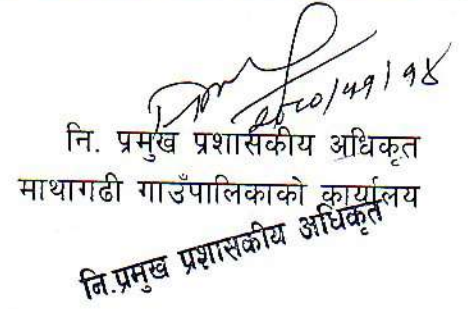 २०८०/११/१४
नि. प्रमुख प्रशासकीय अधिकृत
माथागढी गाउँपालिकाको कार्यालय
नि.प्रमुख प्रशासकीय अधिकृत